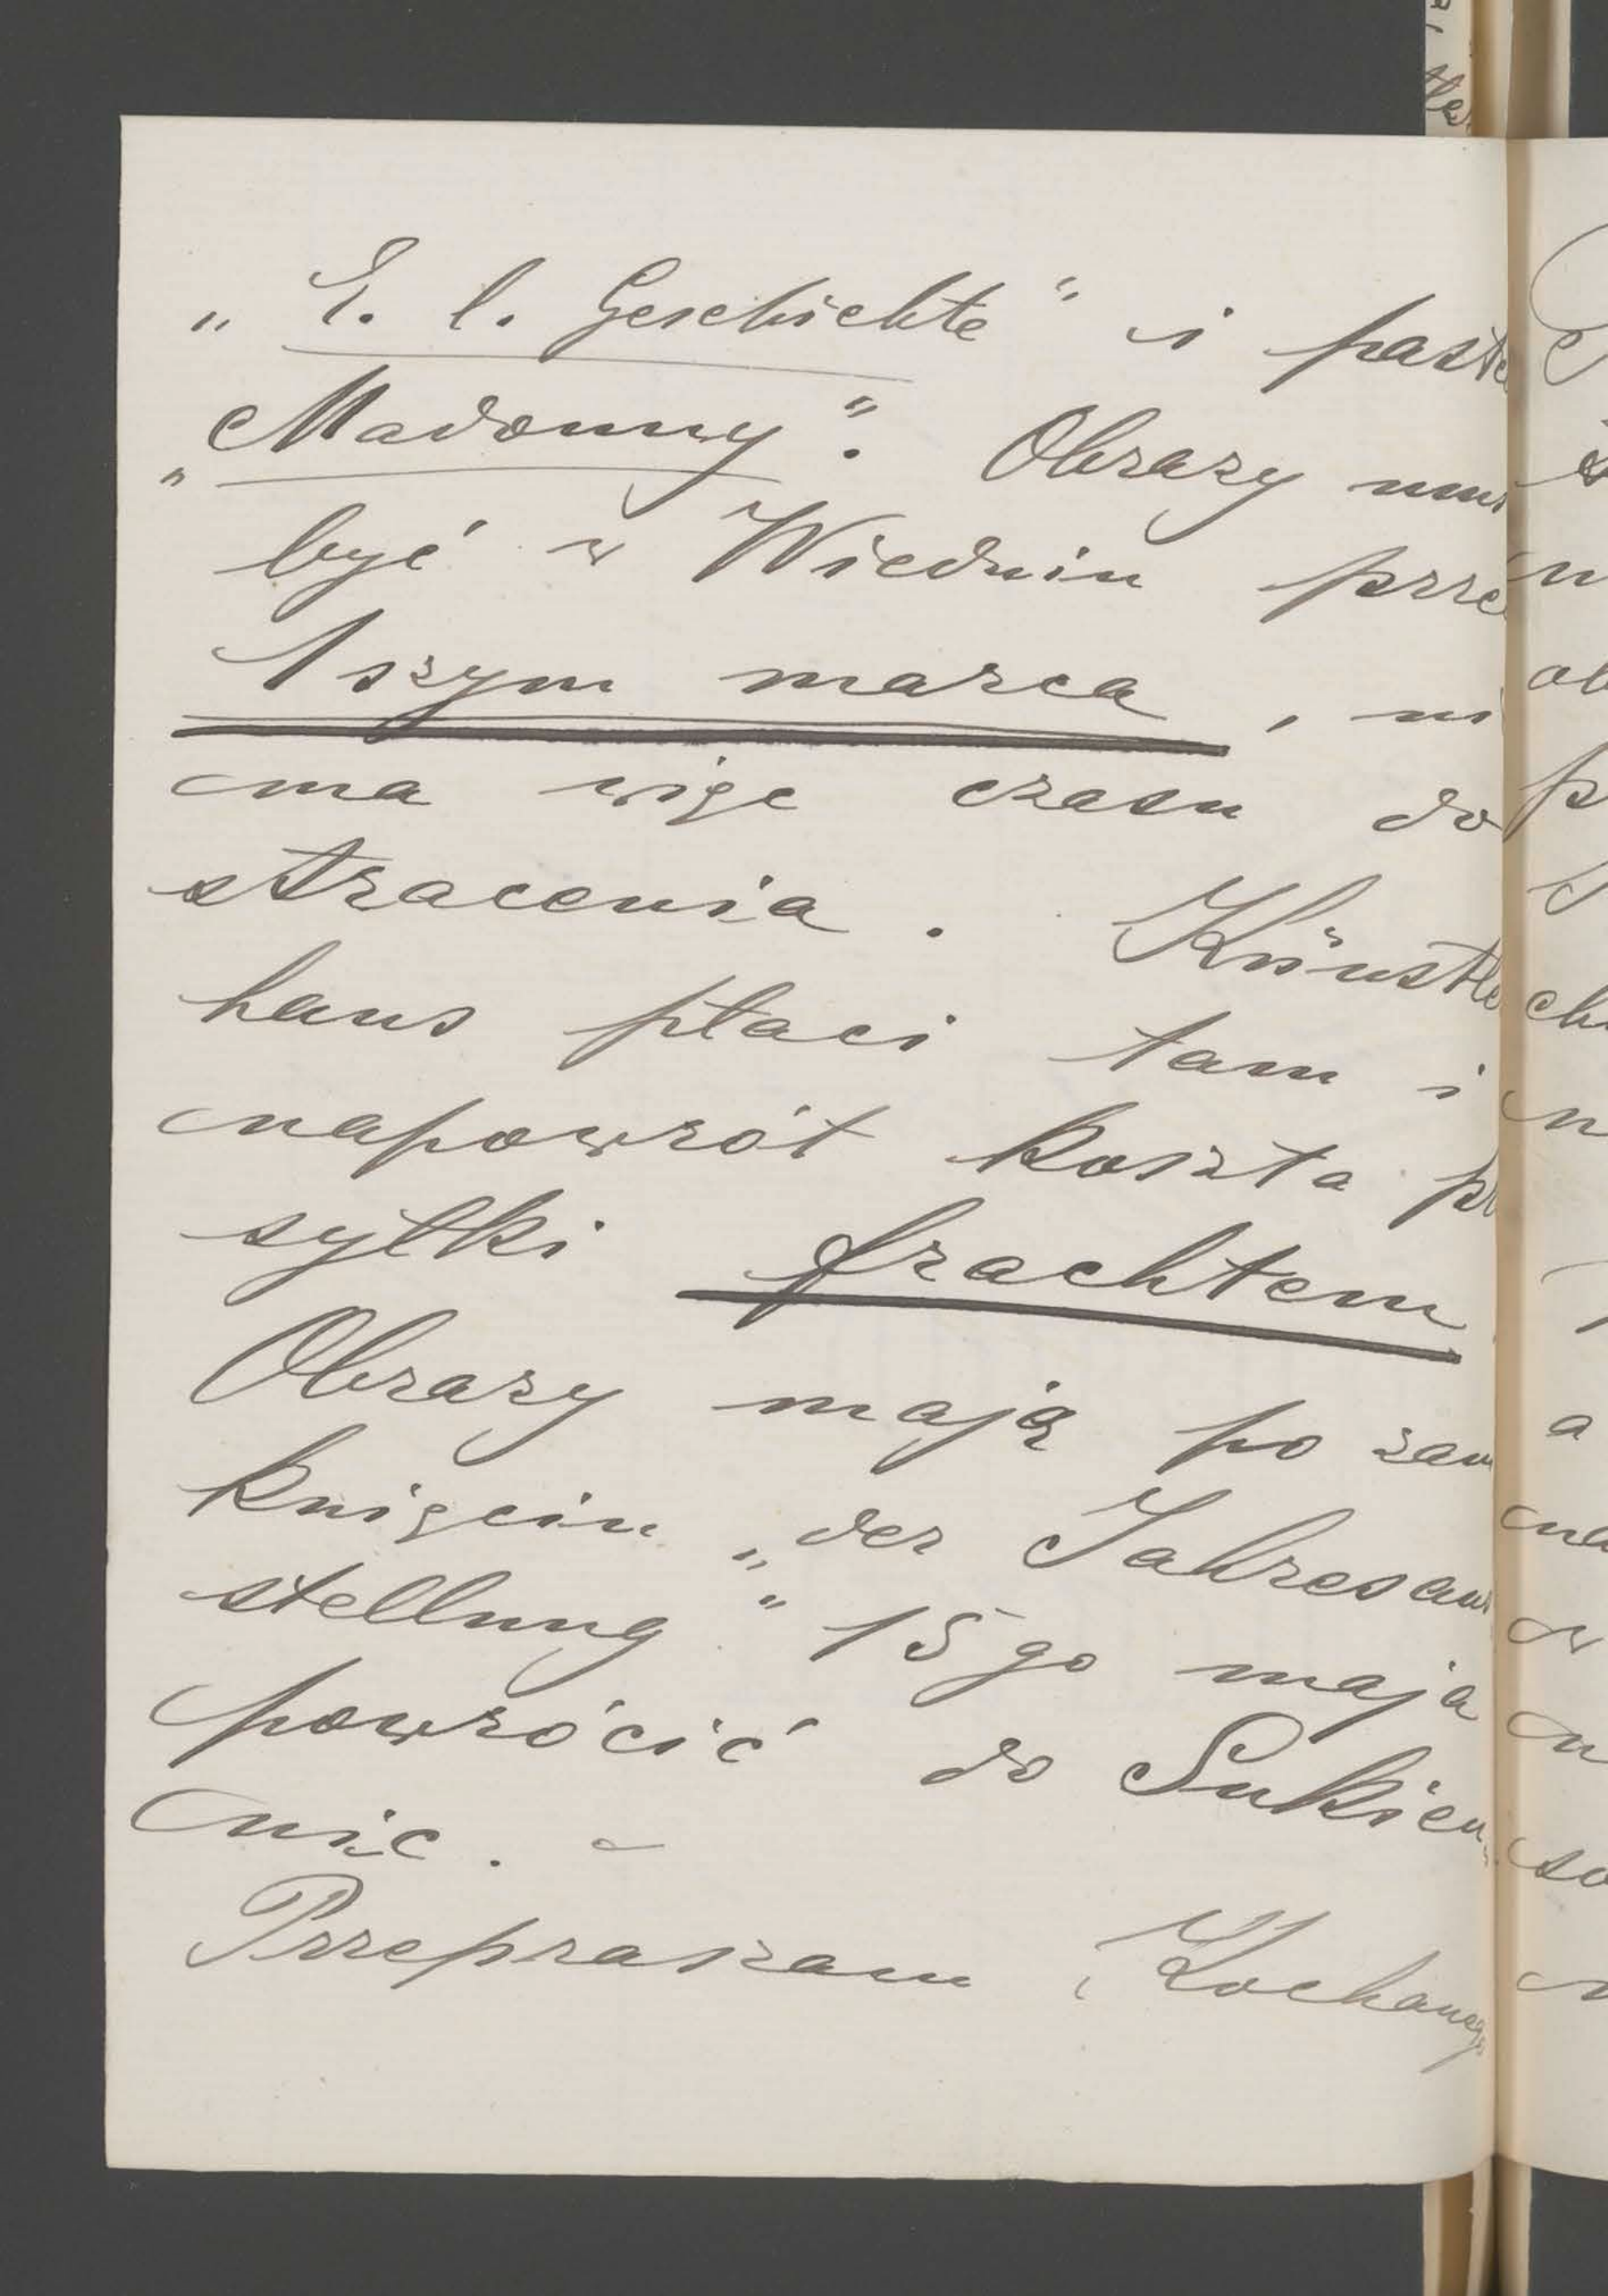 „E. l. Geschichte" i paste
„Madonny". Obrazy mus
być w Wiedniu prze
1szym marca, ni
ma więc czasu do
stracenia. Künstle
haus płaci tam i
napowrót koszta p
syłki frachtem
Obrazy mają po zam
knięciu „der Jahresaus
stellung" 15go maja
powrócić do Sukien
nic. –
Przepraszam, Kochanego